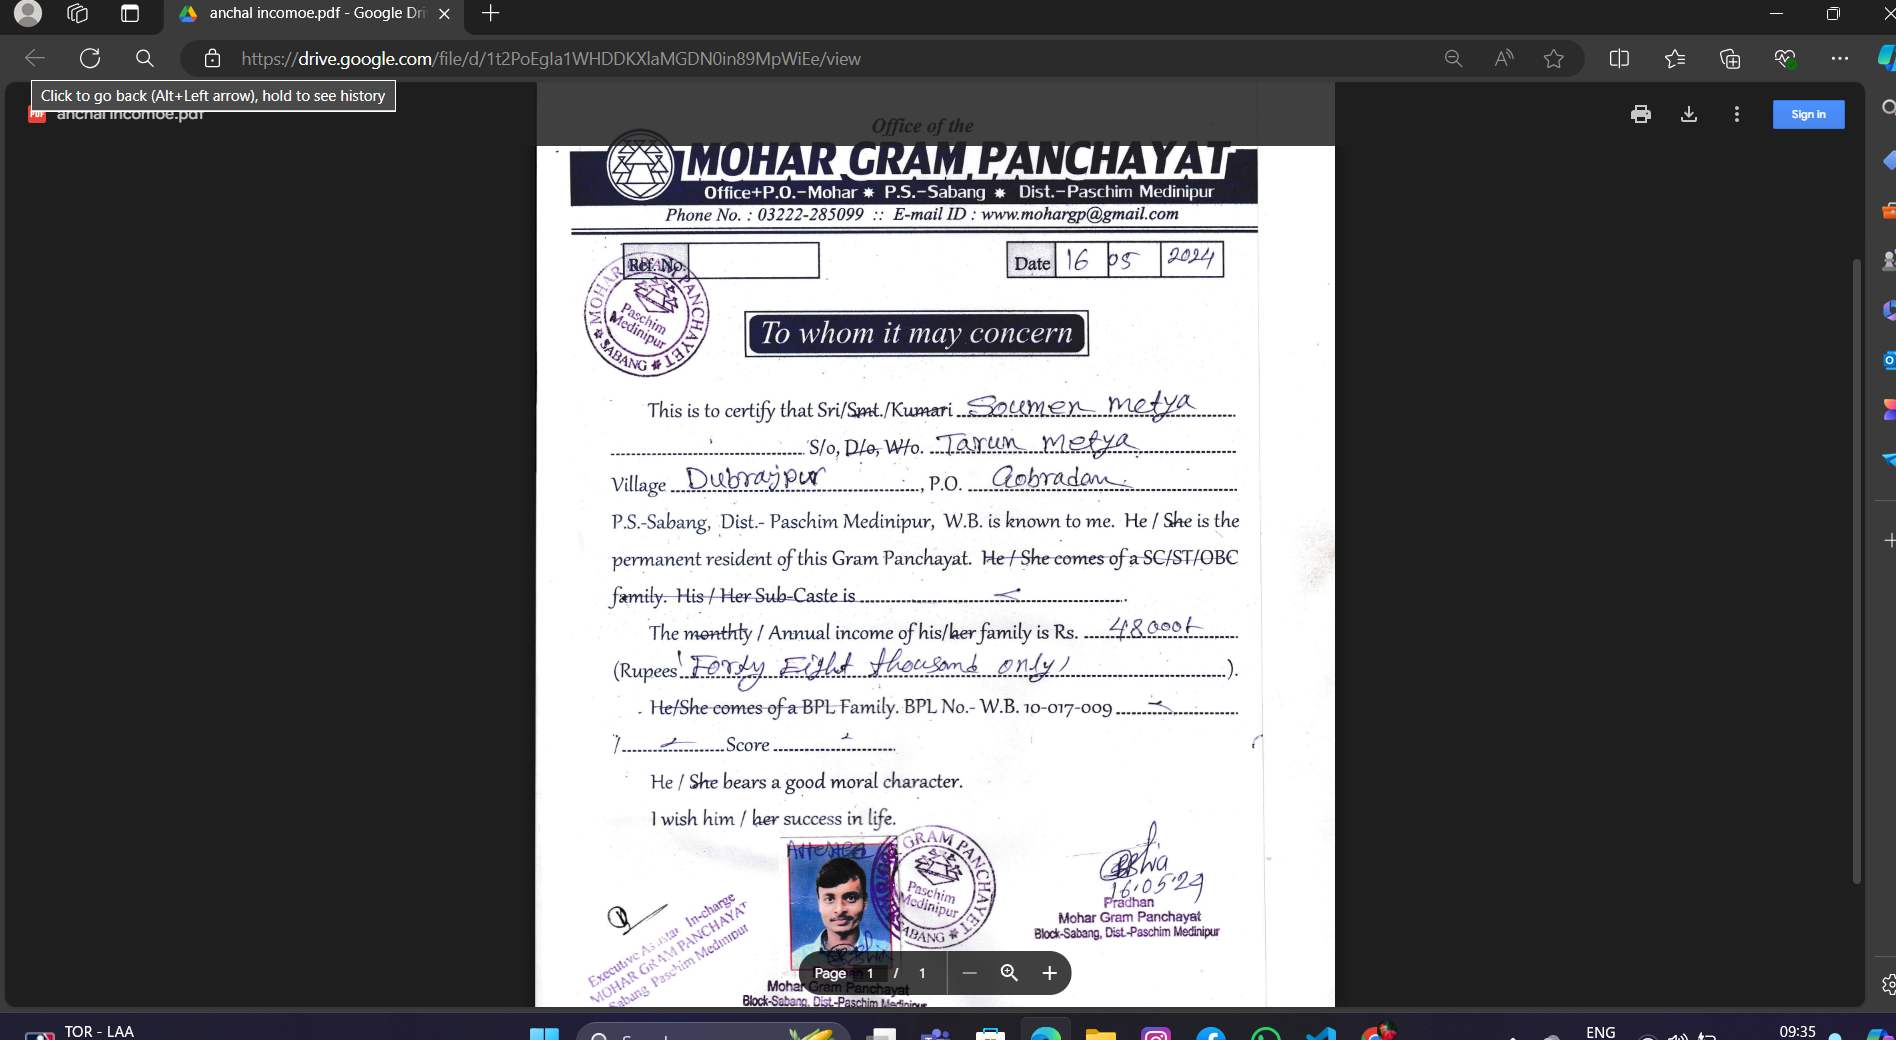 anchal incomoe.pdf - Google Dri
https://drive.google.com/file/d/1t2PoEgIa1WHDDKXlaMGDN0in89MpWiEe/view
Click to go back (Alt+Left arrow), hold to see history
PDF anchal incomoe.pdf
Sign in
Office of the
MOHAR GRAM PANCHAYAT
Office+P.O.–Mohar ★ P.S.–Sabang ★ Dist.–Paschim Medinipur
Phone No. : 03222-285099 :: E-mail ID : www.mohargp@gmail.com
Ref. No.
Date 16 05 2024
MOHAR GRAM PANCHAYET
Paschim
Medinipur
★ SABANG ★
To whom it may concern
This is to certify that Sri/Smt./Kumari Soumen Metya
S/o, D/o, W/o. Tarun Metya
Village Dubrajpur, P.O. Gobradan
P.S.-Sabang, Dist.- Paschim Medinipur, W.B. is known to me. He / She is the
permanent resident of this Gram Panchayat. He / She comes of a SC/ST/OBC
family. His / Her Sub-Caste is
The monthly / Annual income of his/her family is Rs. 48000/-
(Rupees Fordy Eight thousand only).
He/She comes of a BPL Family. BPL No.- W.B. 10-017-009
/ Score
He / She bears a good moral character.
I wish him / her success in life.
Attested
GRAM PANCHAYET
Paschim
Medinipur
SABANG ★
16.05.24
Pradhan
Mohar Gram Panchayat
Block-Sabang, Dist.-Paschim Medinipur
Executive Assistar In-charge
MOHAR GRAM PANCHAYAT
Sabang Paschim Medinipur
Page 1 / 1
Mohar Gram Panchayat
Block-Sabang, Dist.-Paschim Medinipur
TOR - LAA
Search
ENG
09:35